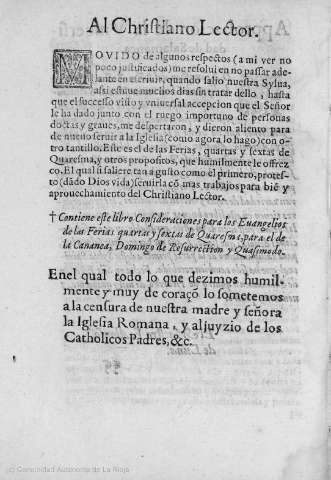 Al Christiano Lector.
MOVIDO de algunos respectos (a mi ver no
poco justificados) me resolui en no passar ade-
lante en escriuir, quando salio nuestra Sylua,
assi estuue muchos dias sin tratar dello, hasta
que el successo visto y vniuersal accepcion que el Señor
le ha dado junto con el ruego importuno de personas
doctas y graues, me despertaron, y dieron aliento para
de nueuo seruir a la Iglesia (como agora lo hago) con o-
tro tantillo. Este es el de las Ferias, quartas y sextas de
Quaresma, y otros propositos, que humilmente le offrez
co. El qual si saliere tan a gusto como el primero, protes-
to (dãdo Dios vida) seruirla cõ mas trabajos para biẽ y
aprouechamiento del Christiano Lector.
† Contiene este libro Consideraciones para los Euangelios
de las Ferias quartas y sextas de Quaresma, para el de
la Cananea, Domingo de Resurrection y Quasimodo.
En el qual todo lo que dezimos humil-
mente y muy de coraçõ lo sometemos
a la censura de nuestra madre y señora
la Iglesia Romana, y al juyzio de los
Catholicos Padres, &c.
(c) Comunidad Autónoma de La Rioja